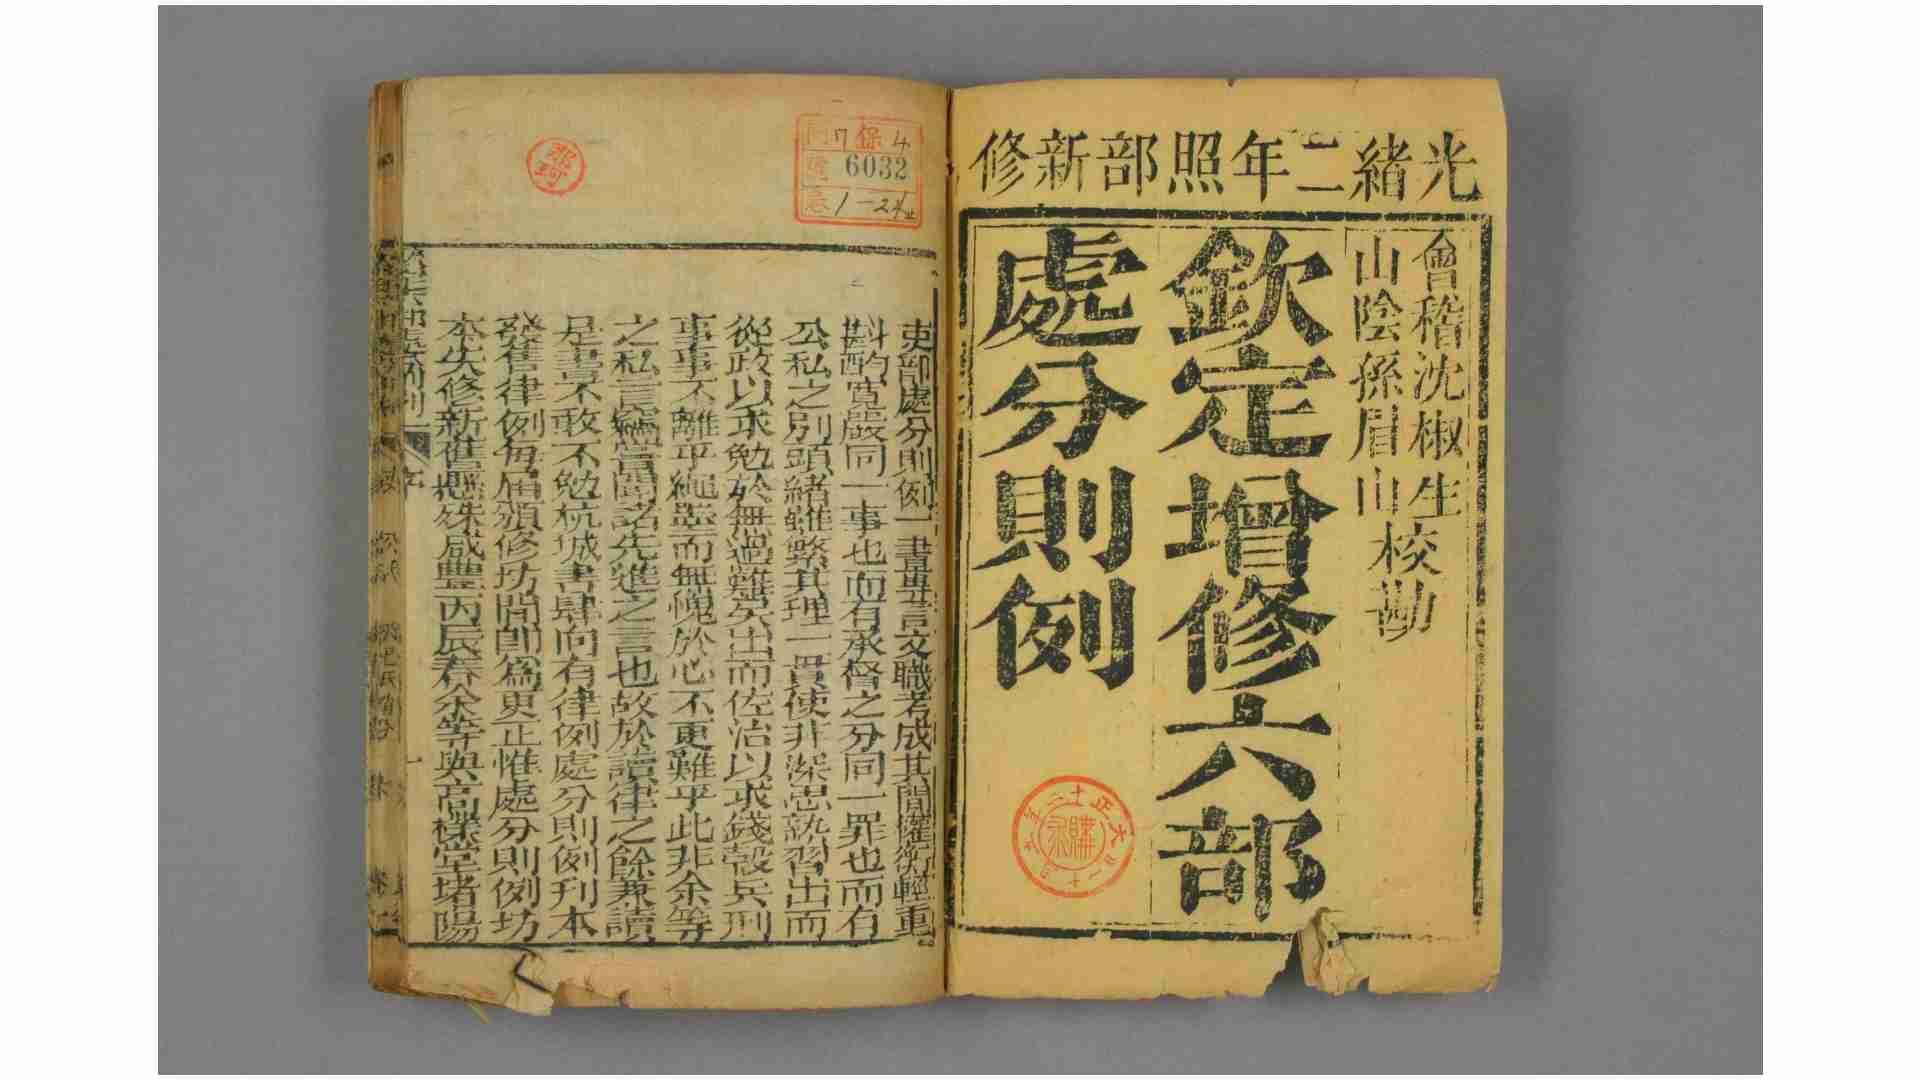 光緒二年照部新修
會稽沈椒生
山陰孫眉山
校勘
欽定增修六部
處分則例
大正十二年
購求
保4
6032
1-24
吏部處分則例一書專言文職考成其間權衡輕重
斟酌寬嚴同一事也而有承督之分同一罪也而有
公私之別頭緒雖繁其理一貫使非深思熟習出而
從政以求勉於無過難矣出而佐治以求錢穀兵刑
事事不離乎繩墨而無愧於心不更難乎此非余等
之私言竊嘗聞諸先進之言也故於讀律之餘兼讀
是書不敢不勉杭城書肆向有律例處分則例刊本
發售律例每屆頒修坊間即為更正惟處分則例坊
本失修新舊懸殊咸豐丙辰春余等與高檪堂堵陽
序
一